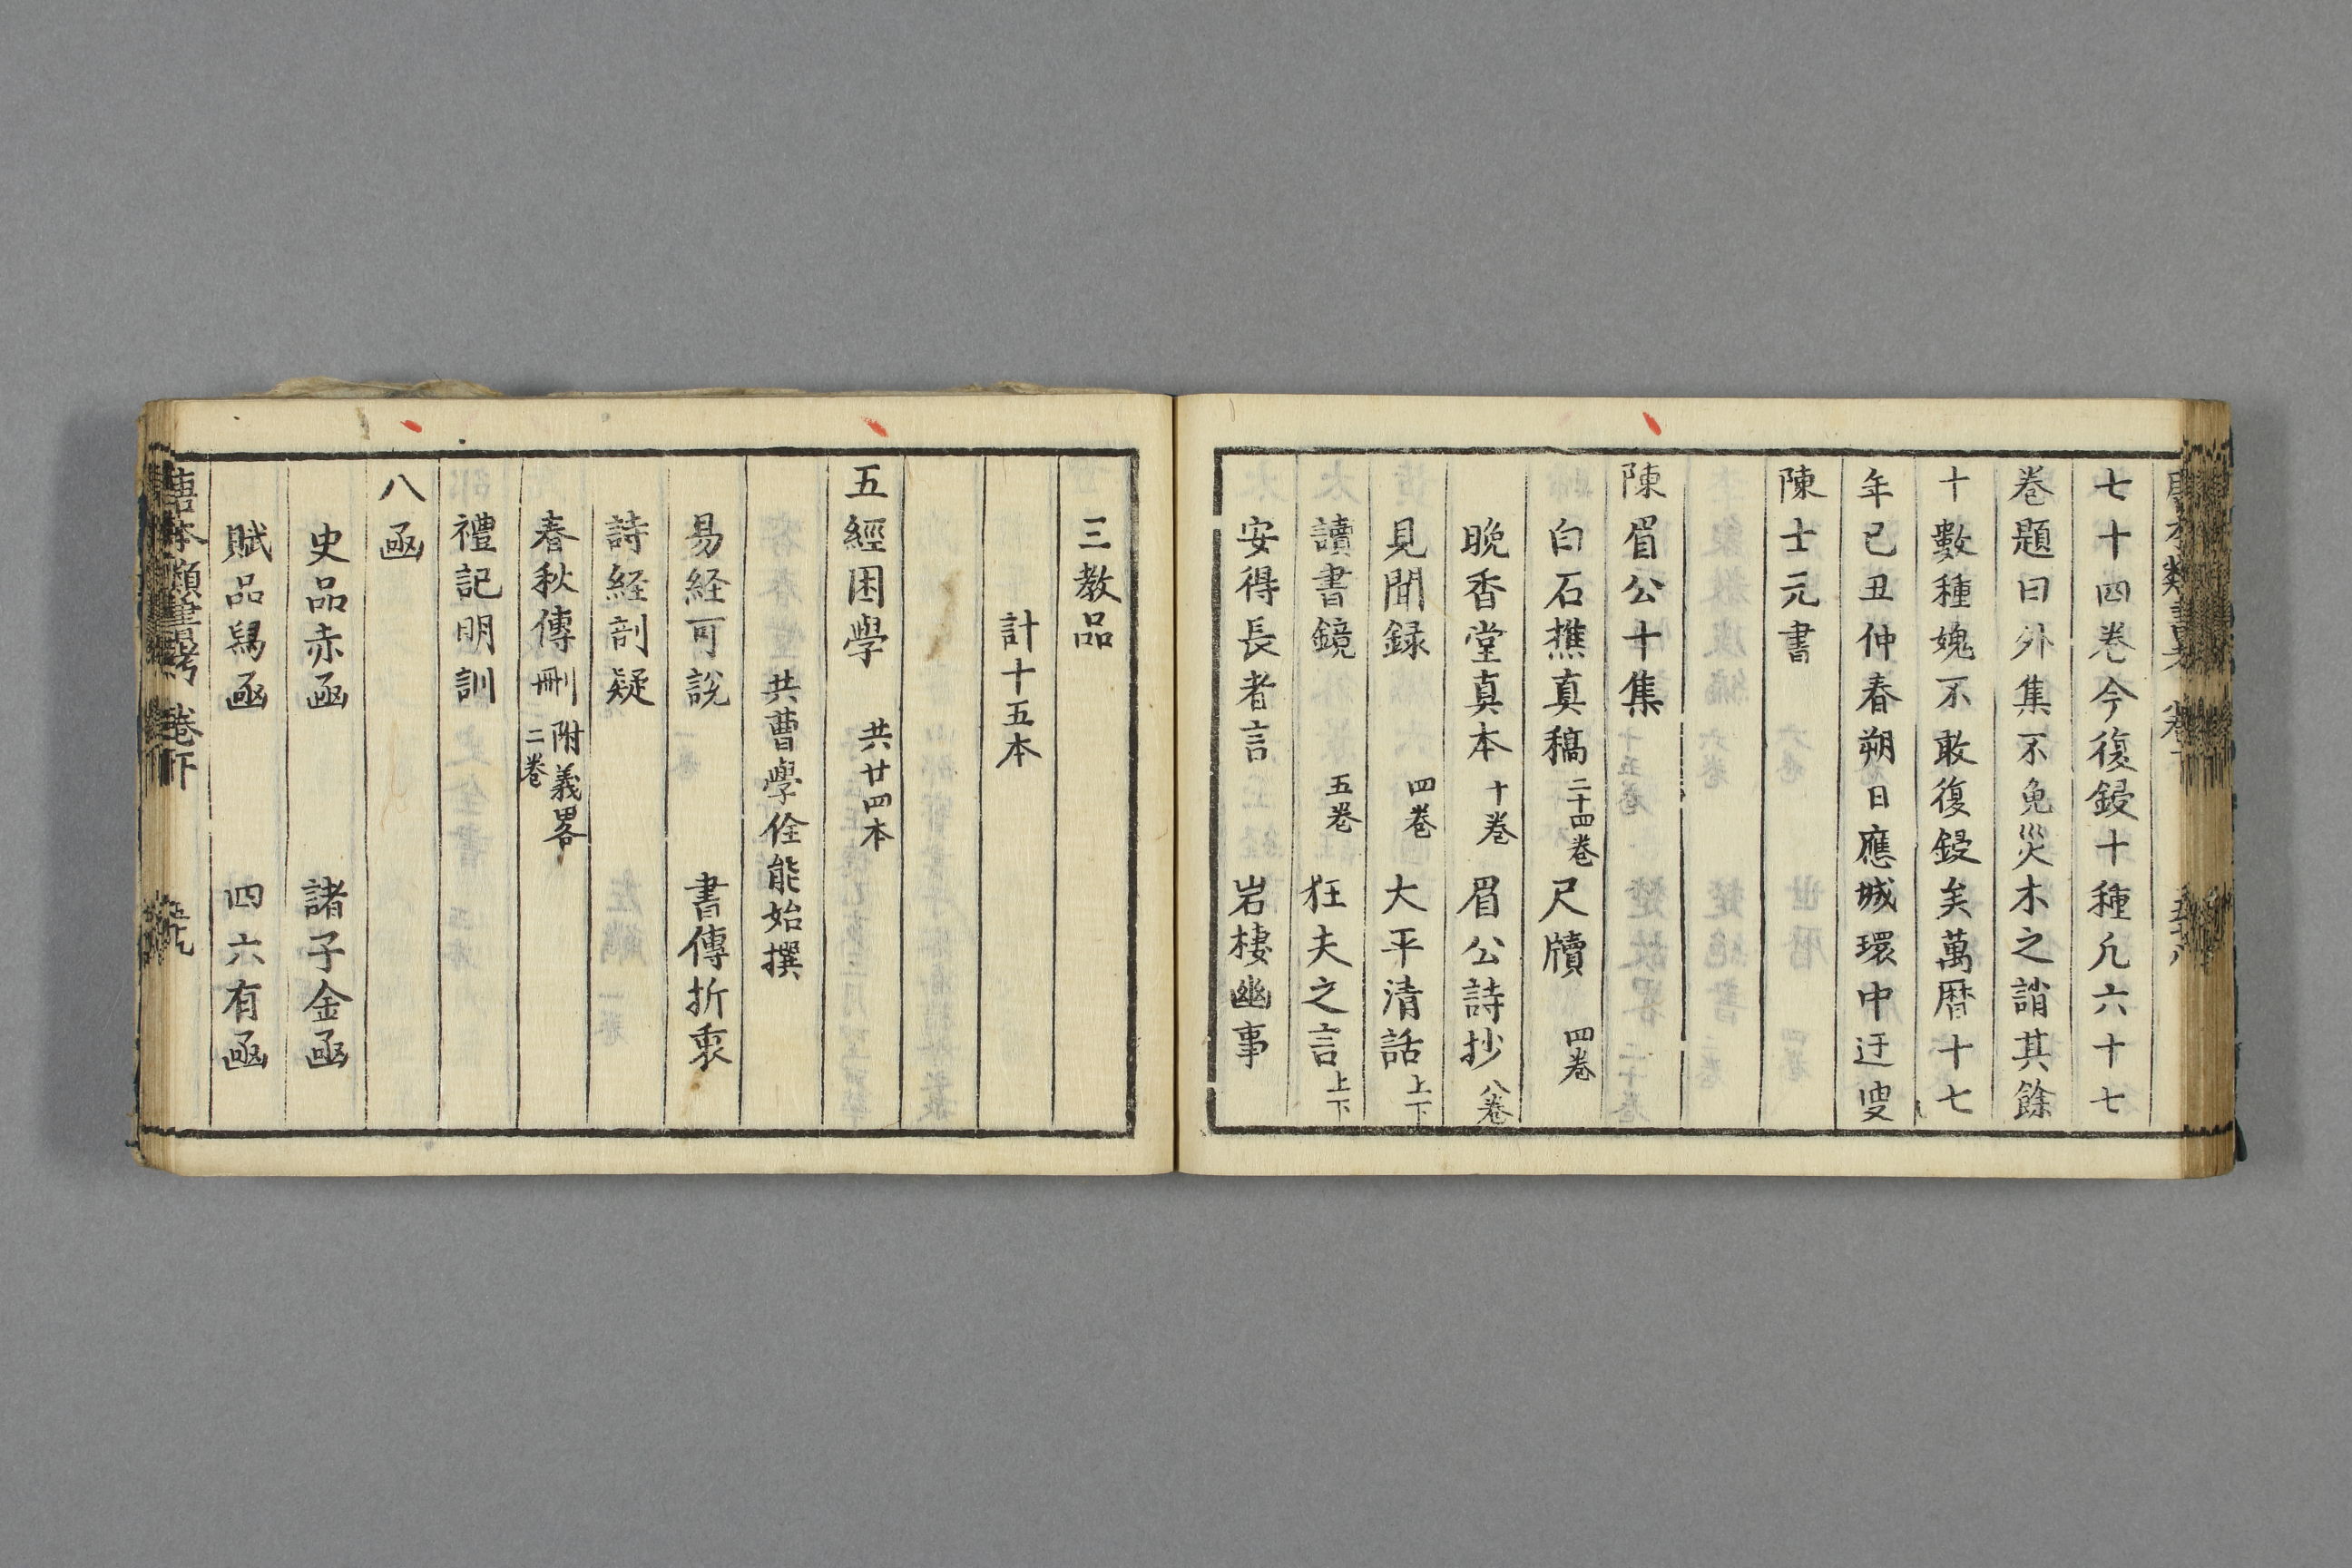 七十四巻今復鋟十種凢六十七
巻題曰外集不免災木之誚其餘
十數種媿不敢復鋟矣萬暦十七
年已丑仲春朔日應城環中迂叟
陳士元書
陳眉公十集
白石樵真稿 二十四巻 尺牘 四巻
晩香堂真本 十巻 眉公詩抄 八巻
見聞録 四巻 大平清話 上下
讀書鏡 五巻 狂夫之言 上下
安得長者言 岩棲幽事
三教品
計十五本
五經困學 共廿四本
共曹學佺能始撰
易経可説 書傳折衷
詩経剖疑
春秋傳刪 附義畧二巻
禮記明訓
八凾
史品赤凾 諸子金凾
賦品舄凾 四六有凾
唐本類書考 巻下